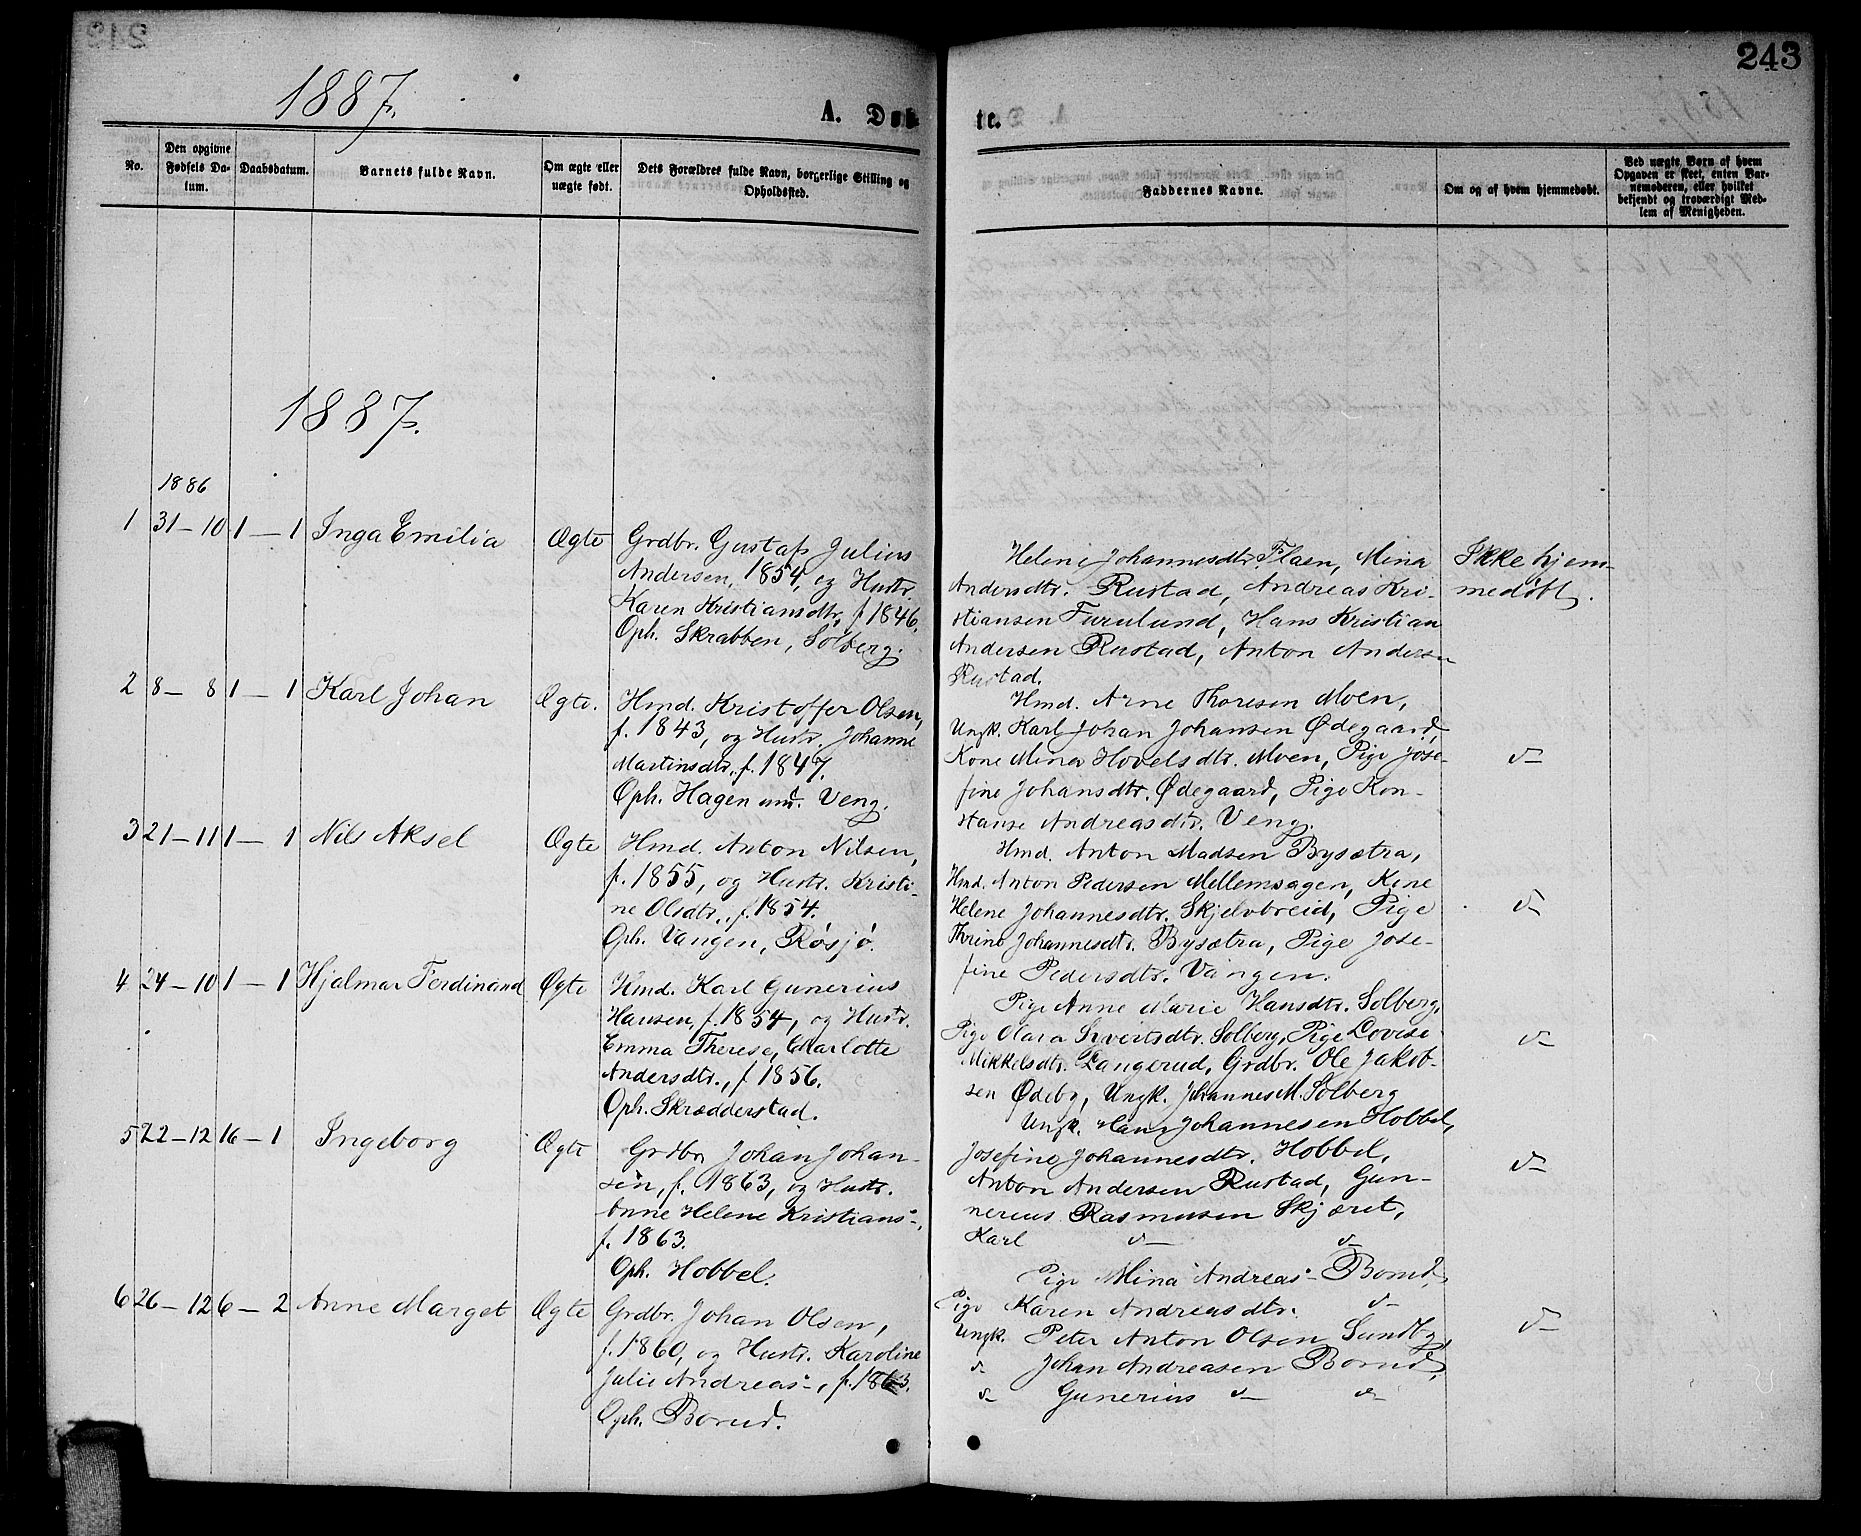 243
1887.
A. Døbte.
No.
Den opgivne Fødsels Datum.
Daabsdatum.
Barnets fulde Navn.
Om ægte eller uægte født.
Dets Forældres fulde Navn, borgerlige Stilling og Opholdssted.
Faddernes Navne.
Om og af hvem hjemmedøbt.
Ved uægte Børn af hvem Opgaven er skeet, enten Barnemoderen, eller hvilket bekjendt og troværdigt Medlem af Menigheden.
1887.
1886
1 31-10 1-1 Inga Emilia Ægte Grdbr. Gustaf Julius
Andersen, 1854, og Hustr.
Karen Kristiansdtr, f 1846.
Oph. Skrabben, Solberg.
Helene Johannesdtr. Flaen, Mina
Andersdtr. Rustad, Andreas Kri-
stiansen Furulund, Hans Kristian
Andersen Rustad, Anton Andersen
Rustad.
Ikke hjem-
medøbt.
2 8-8 1-1 Karl Johan Ægte. Hmd. Kristoffer Olsen,
f. 1843, og Hustr. Johanne
Martinsdtr. f. 1847.
Oph. Hagen und. Veng.
Hmd. Arne Thoresen Moen,
Ungk. Karl Johan Johansen Ødegaard,
Kone Mina Hovelsdtr. Moen, Pige Jose-
fine Johansdtr. Ødegaard, Pige Kon-
stanse Andreasdtr. Veng.
d-
3 21-11 1-1 Nils Aksel Ægte Hmd. Anton Nilsen,
f. 1855, og Hustr. Kristi-
ne Olsdtr., f. 1854.
Oph. Vangen, Røsjø.
Hmd. Anton Madsen Bysætra,
Hmd. Anton Pedersen Mellemsagen, Kone
Helene Johannesdtr. Skjelvbreid, Pige
Thrine Johannesdtr. Bysætra, Pige Jose-
fine Pedersdtr. Vangen.
d-
4 24-10 1-1 Hjalmar Ferdinand Ægte Hmd. Karl Gunerius
Hansen, f. 1854, og Hustr.
Emma Therese, Charlotte
Andersdtr., f 1856.
Oph. Skrædderstad.
Pige Anne Marie Hansdtr. Solberg,
Pige Olava Sivertsdtr. Solberg, Pige Lovise
Mikkelsdtr. Langerud, Grdbr. Ole Jakob-
sen Ødeby, Ungk. Johannes M. Solberg
d-
5 22-12 16-1 Ingeborg Ægte Grdbr. Johan Johan-
sen, f. 1863, og Hustr.
Anne Helene Kristians-,
f. 1863.
Oph. Hobbel.
Ungk. Hans Johannesen Hobbel,
Josefine Johannesdtr. Hobbel,
Anton Andersen Rustad, Gun-
nerius Rasmusen Skjæret,
Karl d- d-
d-
6 26-12 6-2 Anne Marget Ægte Grdbr. Johan Olsen,
f. 1860, og Hustr. Karoline
Julie Andreas-, f. 1863.
Oph. Borud.
Pige Mina Andreas- Borud,
Pige Karen Andreasdtr. d-
Ungk. Peter Anton Olsen Sundby,
d- Johan Andreasen Borud,
d- Gunerius d- d-
d-